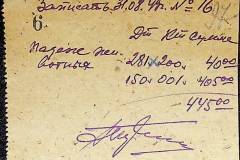 Записать 31.08.47. № 16
6.
Дт Кт Сумма
Падеж жи-
вотных 281 200. 4000
150.001. 40500
44500